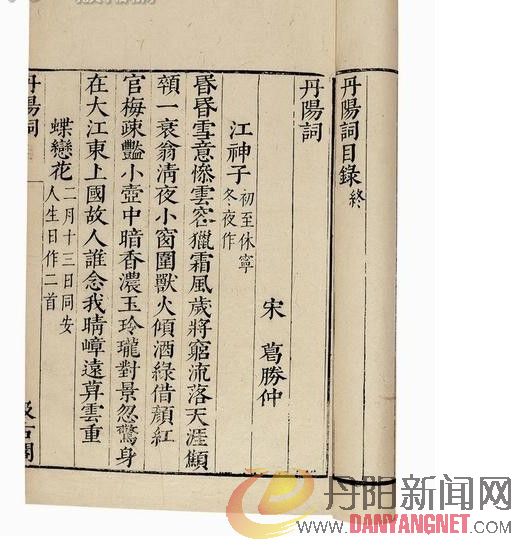 丹陽詞目錄終
丹陽詞
宋 葛勝仲
江神子 初至休寧
冬夜作
昬昬雪意慘雲容獵霜風歲將窮流落天涯顦
顇一衰翁清夜小窗圍獸火傾酒綠借顏紅
官梅疎豔小壺中暗香濃玉玲瓏對景忽驚身
在大江東上國故人誰念我晴嶂遠暮雲重
蝶戀花 二月十三日同安
人生日作二首
丹陽詞
汲古閣
丹阳新闻网
DANYANGNET.com